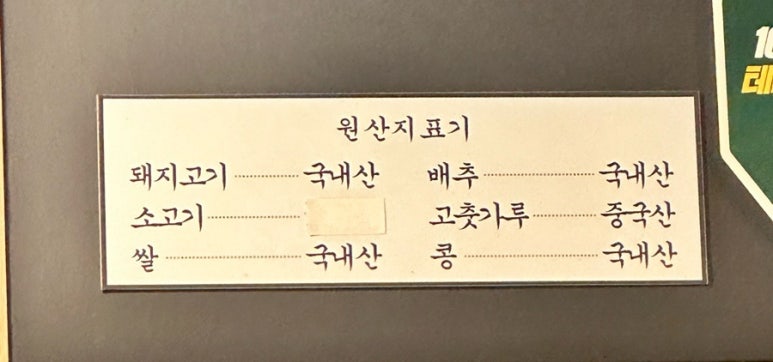 원산지표기
돼지고기 ············ 국내산 배추 ···················· 국내산
소고기 ·················· 고춧가루 ············ 중국산
쌀 ························· 국내산 콩 ························· 국내산
10
테